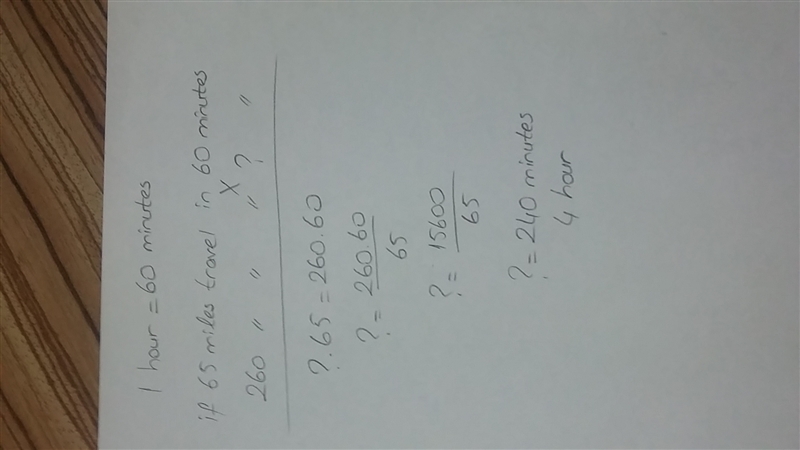 1 hour = 60 minutes
if 65 miles travel in 60 minutes
X
260 " " " ? "
?.65 = 260.60
? = 260.60
65
? = 15600
65
? = 240 minutes
4 hour